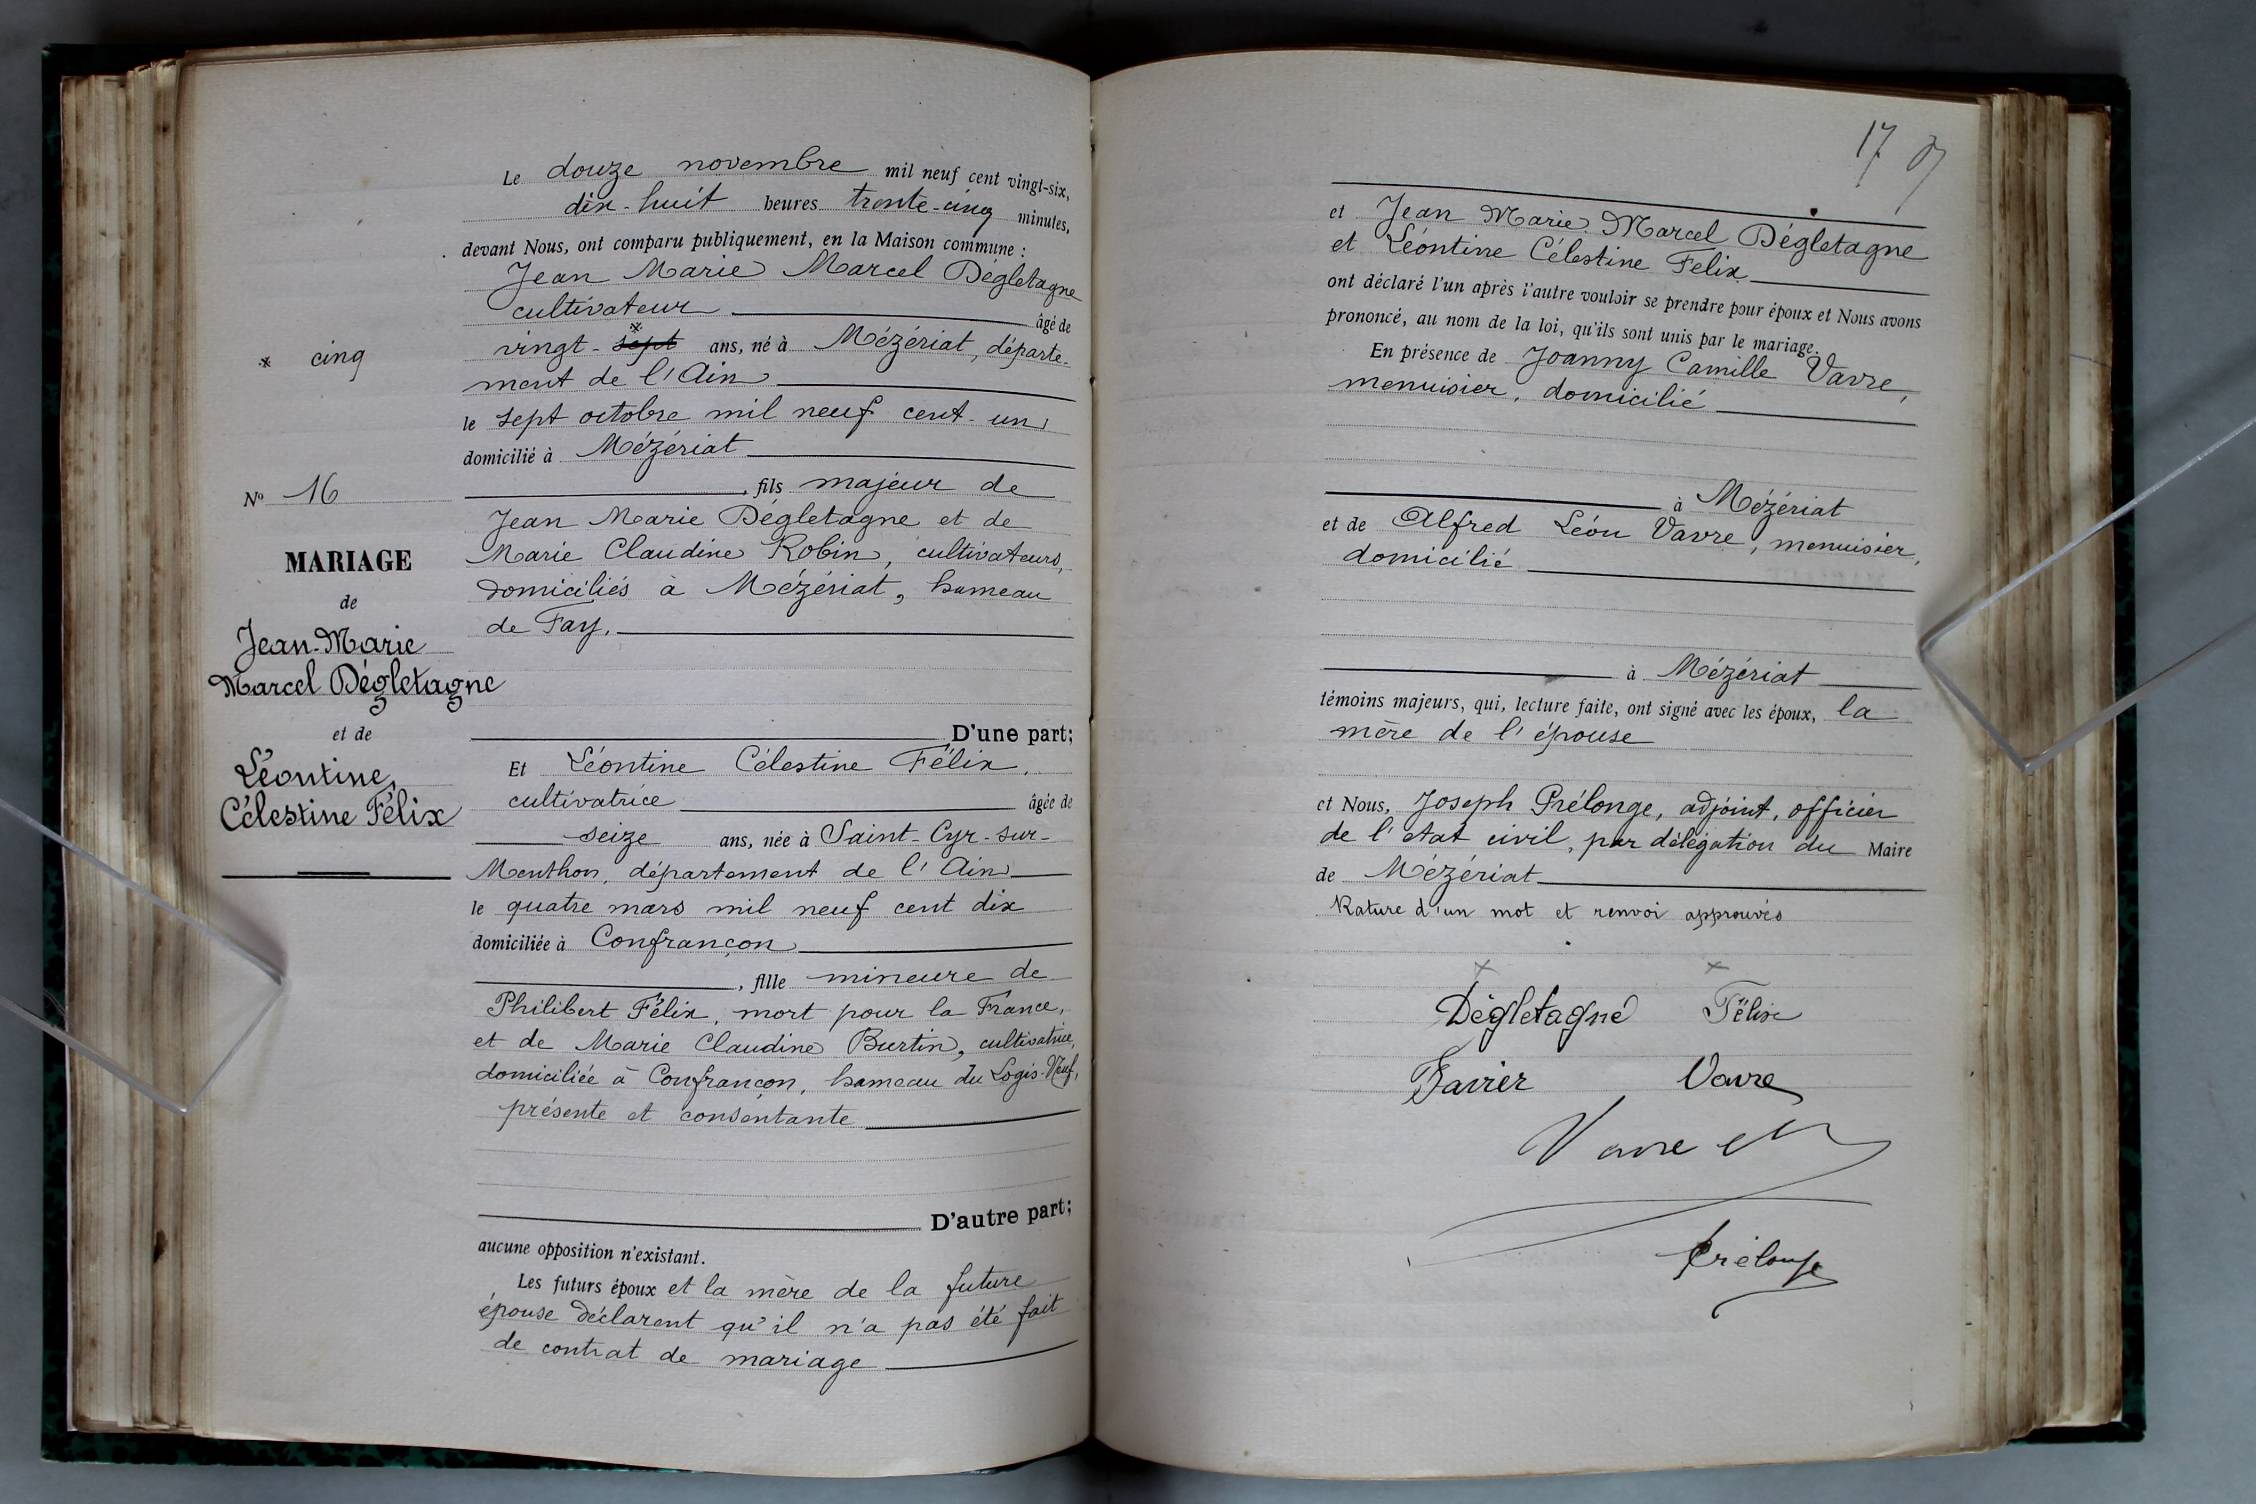 Le douze novembre mil neuf cent vingt-six,
dix-huit heures trente-cinq minutes,
devant Nous, ont comparu publiquement, en la Maison commune :
Jean Marie Marcel Dégletagne
cultivateur âgé de
vingt-sept * ans, né à Mézériat, départe-
* cinq
ment de l'Ain
le sept octobre mil neuf cent un
domicilié à Mézériat
, fils majeur de
Jean Marie Dégletagne et de
Marie Claudine Robin, cultivateurs,
domiciliés à Mézériat, hameau
de Fay.
D'une part;
Et Léontine Célestine Félix,
cultivatrice âgée de
seize ans, née à Saint-Cyr-sur-
Menthon, département de l'Ain
le quatre mars mil neuf cent dix
domiciliée à Confrançon
, fille mineure de
Philibert Félix, mort pour la France,
et de Marie Claudine Burtin, cultivatrice,
domiciliée à Confrançon, hameau du Logis-Neuf,
présente et consentante
D'autre part;
aucune opposition n'existant.
Les futurs époux et la mère de la future
épouse déclarent qu'il n'a pas été fait
de contrat de mariage
No 16
MARIAGE
de
Jean-Marie
Marcel Dégletagne
et de
Léontine,
Célestine Félix
17
et Jean Marie Marcel Dégletagne
et Léontine Célestine Félix
ont déclaré l'un après l'autre vouloir se prendre pour époux et Nous avons
prononcé, au nom de la loi, qu'ils sont unis par le mariage.
En présence de Joanny Camille Vavre,
menuisier, domicilié
à Mézériat
et de Alfred Léon Vavre, menuisier,
domicilié
à Mézériat
témoins majeurs, qui, lecture faite, ont signé avec les époux, la
mère de l'épouse
et Nous, Joseph Prélonge, adjoint, officier
de l'état civil, par délégation du Maire
de Mézériat
Rature d'un mot et renvoi approuvés
x x
Dégletagne Félix
Vavre
Vavre
Prélonge